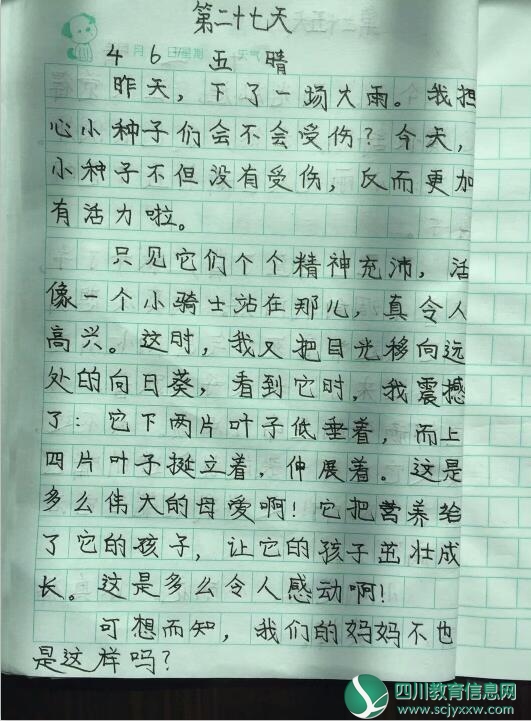 第二十七天
4月6日星期五 天气晴
昨天，下了一场大雨。我担
心小种子们会不会受伤？今天，
小种子不但没有受伤，反而更加
有活力啦。
只见它们个个精神充沛，活
像一个小骑士站在那儿，真令人
高兴。这时，我又把目光移向远
处的向日葵，看到它时，我震撼
了：它下两片叶子低垂着，而上
四片叶子挺立着，伸展着。这是
多么伟大的母爱啊！它把营养给
了它的孩子，让它的孩子茁壮成
长。这是多么令人感动啊！
可想而知，我们的妈妈不也
是这样吗？
四川教育信息网
www.scjyxxw.com